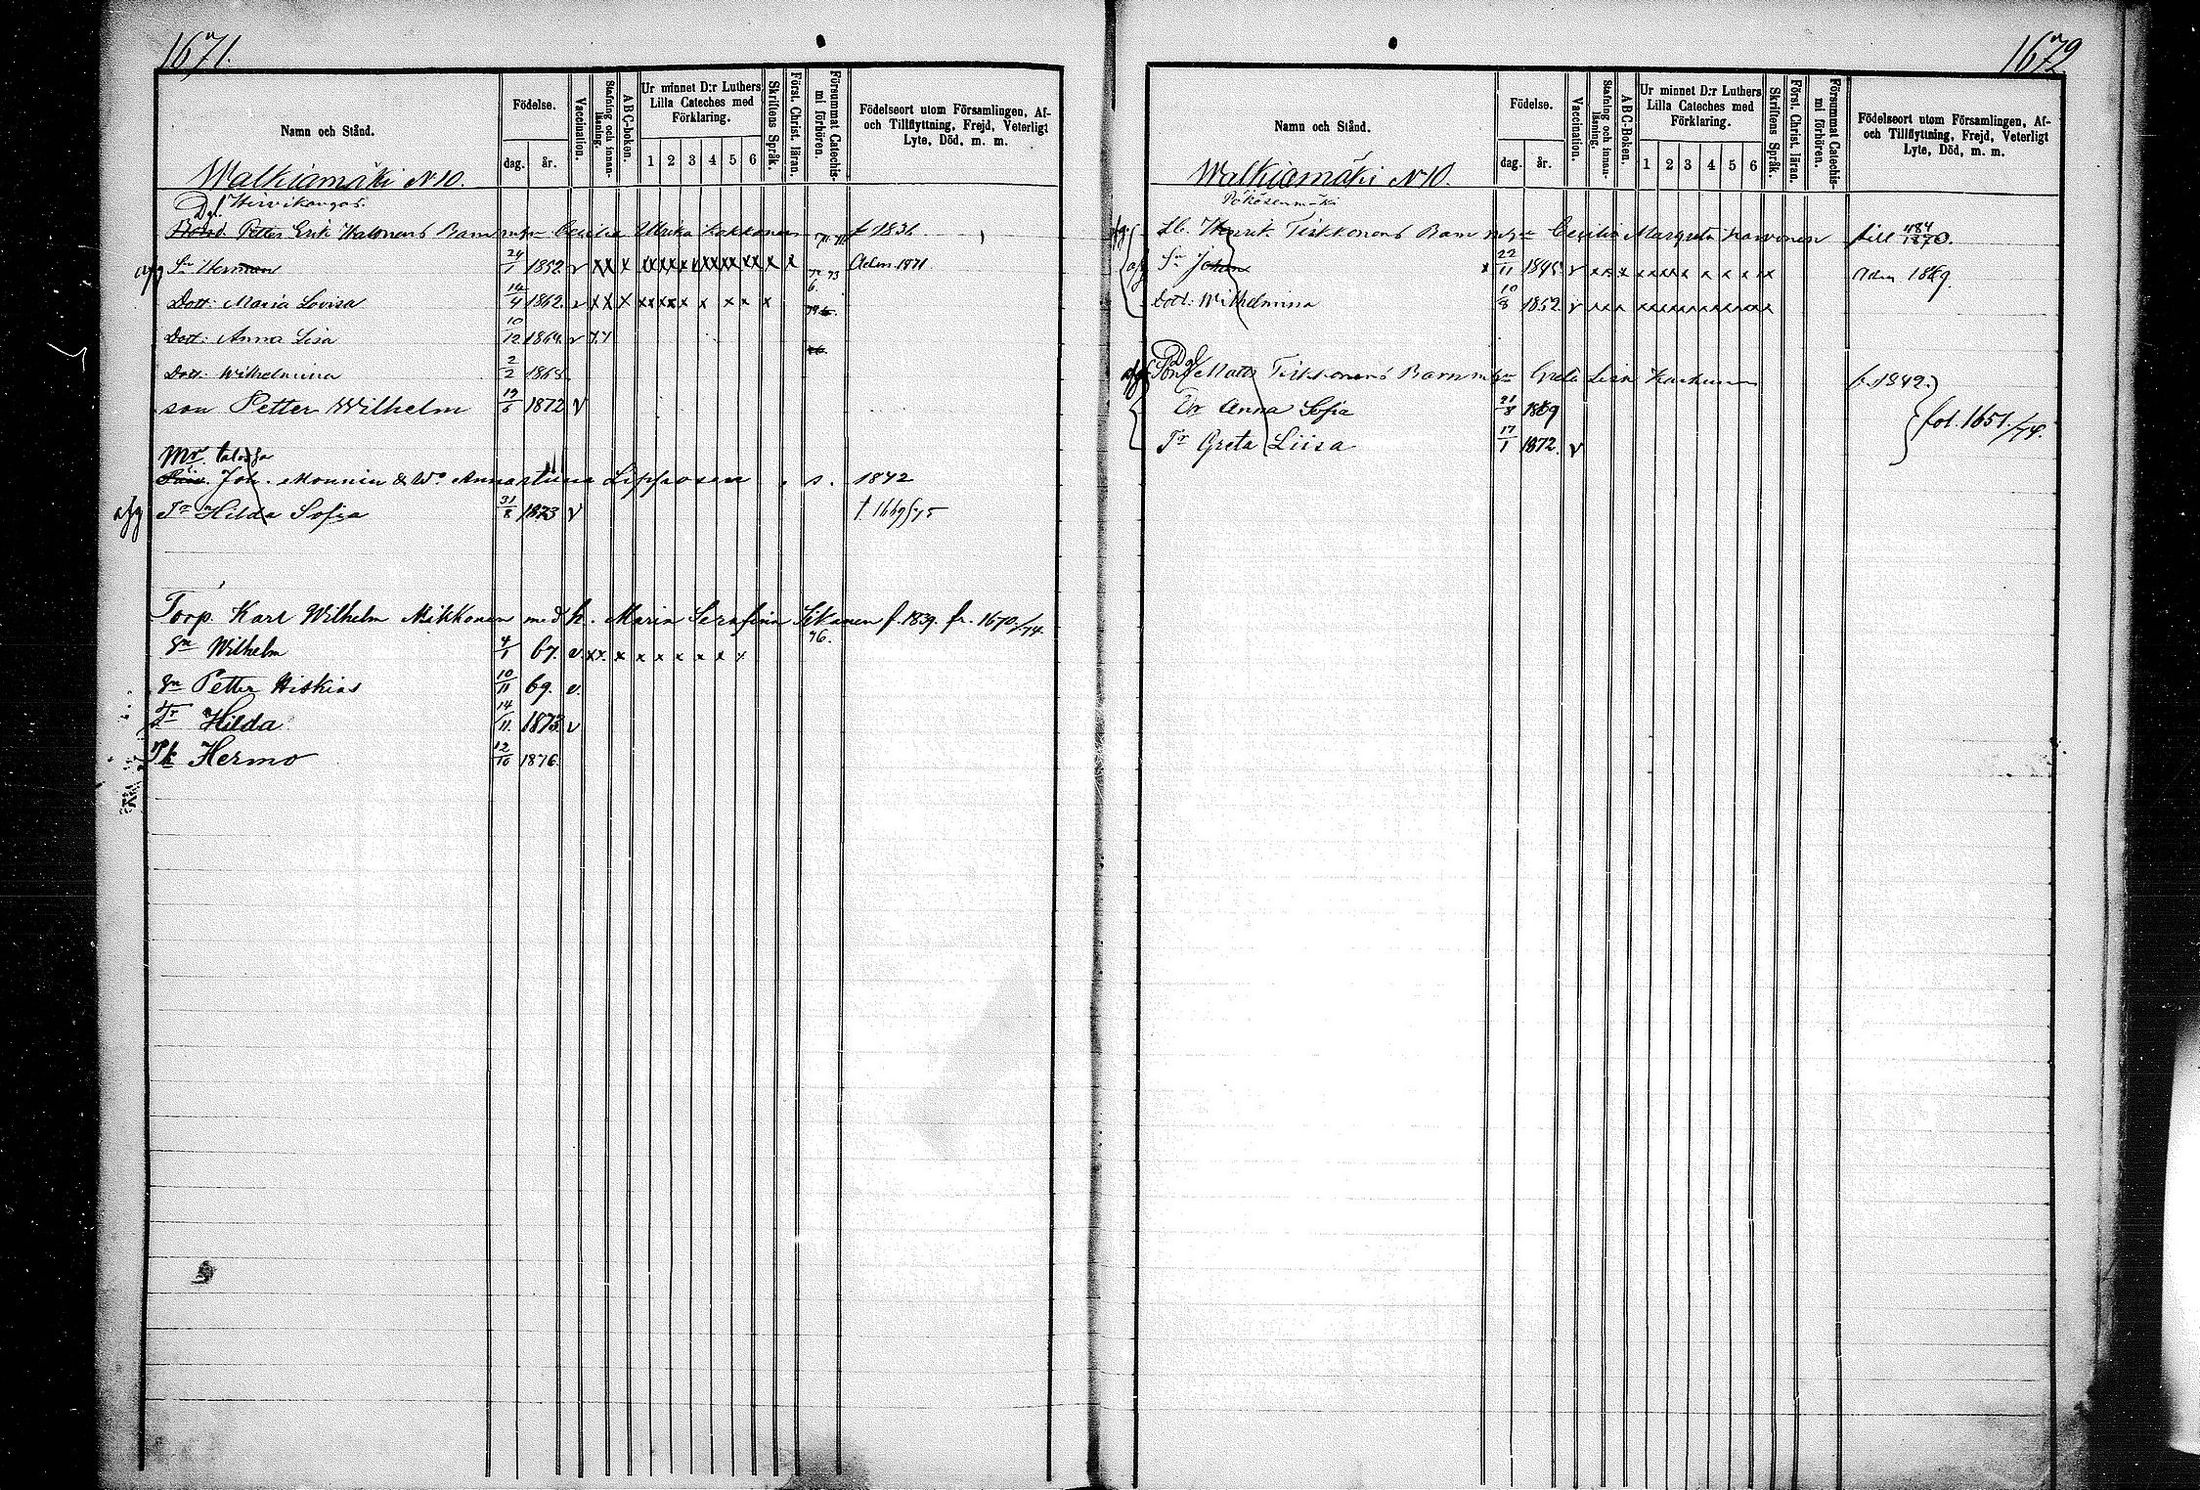 1671.
Namn och Stånd.
Födelse.
dag.
år.
Vaccination.
Stafning och innan-läsning.
ABC-boken.
Ur minnet D:r Luthers
Lilla Cateches med
Förklaring.
1 2 3 4 5 6
Skriftens Språk.
Först. Christ. läran.
Försummat Catechis-
mi förhören.
Födelseort utom Församlingen, Af-
och Tillflyttning, Frejd, Veterligt
Lyte, Död, m. m.
Walkiamäki N10.
Hirvikangas.
Petter Erik Halonens Barn m. h. Cecilia Ulrika Kokkonen f 1831
afg Sn Herman 24/1 1852. v xx x xx x x x xx xx xx x x 73 Adm. 1871.
Dott: Maria Lovisa 14/4 1862. v xx x xx xx x x x x x
Dott: Anna Lisa 10/12 1864. v
Dott: Wilhelmina 2/2 1868.
son Petter Wilhelm 19/6 1872 v
Mr talosta
Joh. Mounin & Wo Anna Stina Lipposen s. 1842
afg Tr Hilda Sofia 31/8 1873 v 1669/75
Torp. Karl Wilhelm Mikkonen med h. Maria Serafina Sikanen f. 1839. fr. 1670/74.
76.
Sn Wilhelm 4/1 67. v. xx. x x x x x x x
Sn Petter Hiskias 10/11 69. v.
Tr Hilda 14/11. 1873. v
Pk Hermo 12/10 1876.
1672
Namn och Stånd.
Födelse.
dag.
år.
Vaccination.
Stafning och innan-läsning.
ABC-Boken.
Ur minnet D:r Luthers
Lilla Cateches med
Förklaring.
1 2 3 4 5 6
Skriftens Språk.
Först. Christ. läran.
Försummat Catechis-
mi förhören.
Födelseort utom Församlingen, Af-
och Tillflyttning, Frejd, Veterligt
Lyte, Död, m. m.
Walkiamäki N10.
afg Lb. Henrik Tirkkonens Barn m. h. Cecilia Margreta Karvonen till
afg Sn Johan 22/11 1845 v x x x x x x x x x x x x Adm 1869.
Dott: Wilhelmina 10/8 1852. v x x x x x x x x x x x x
afg Matts Tirkkonens Barn m. h. Greta Lisa f. 1842.
Dr Anna Sofia 21/8 1869
Tr Greta Liisa 17/1 1872. v
fol. 1651/74.